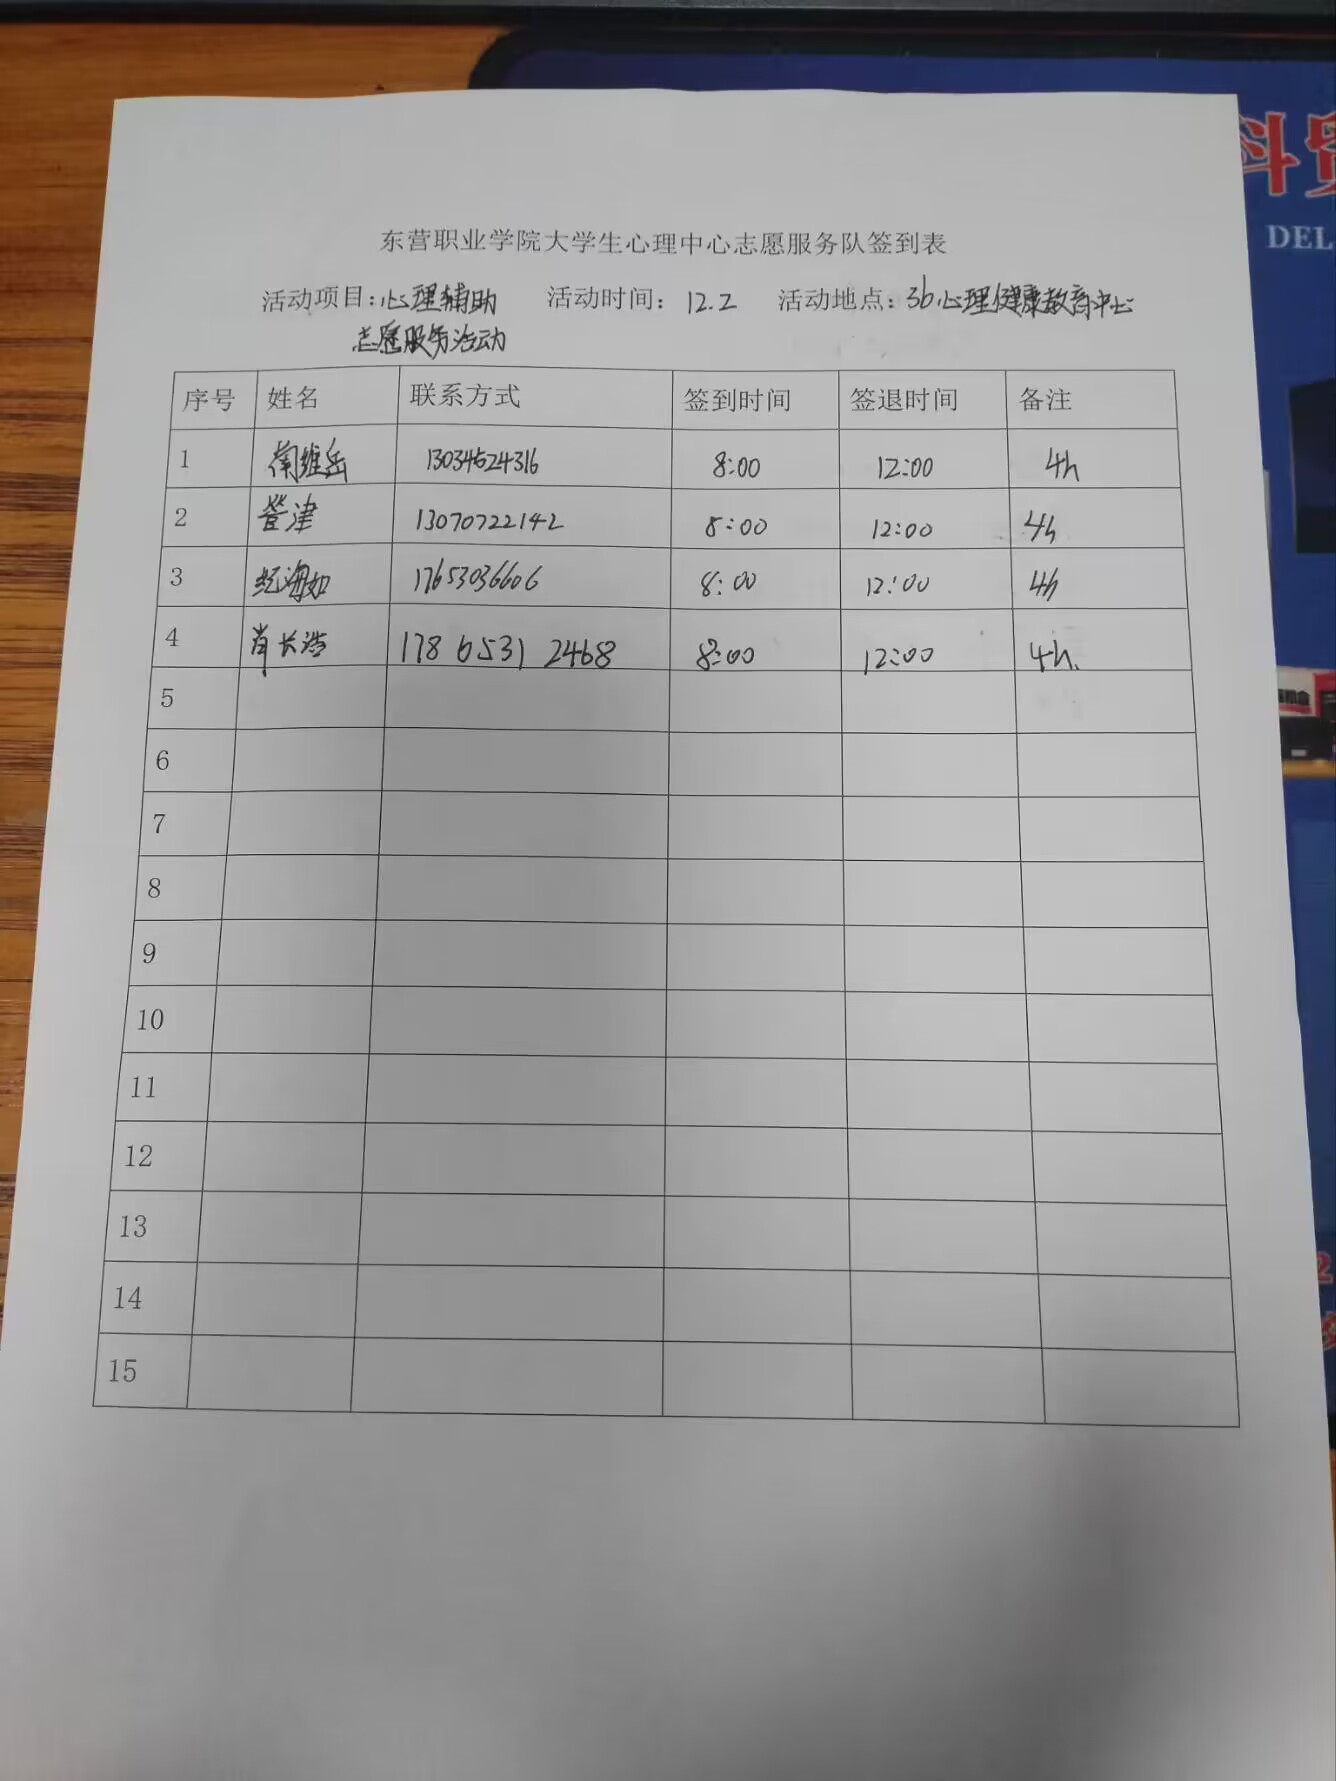 东营职业学院大学生心理中心志愿服务队签到表
活动项目:心理辅助 活动时间: 12.2 活动地点: 3b心理健康教育中心
志愿服务活动
序号 姓名 联系方式 签到时间 签退时间 备注
1 维岳 13034524316 8:00 12:00 4h
2 津 13070722142 8:00 12:00 4h
3 纪海如 17653036606 8:00 12:00 4h
4 肖长浩 178 6531 2468 8:00 12:00 4h.
5
6
7
8
9
10
11
12
13
14
15
科贸
DEL
2